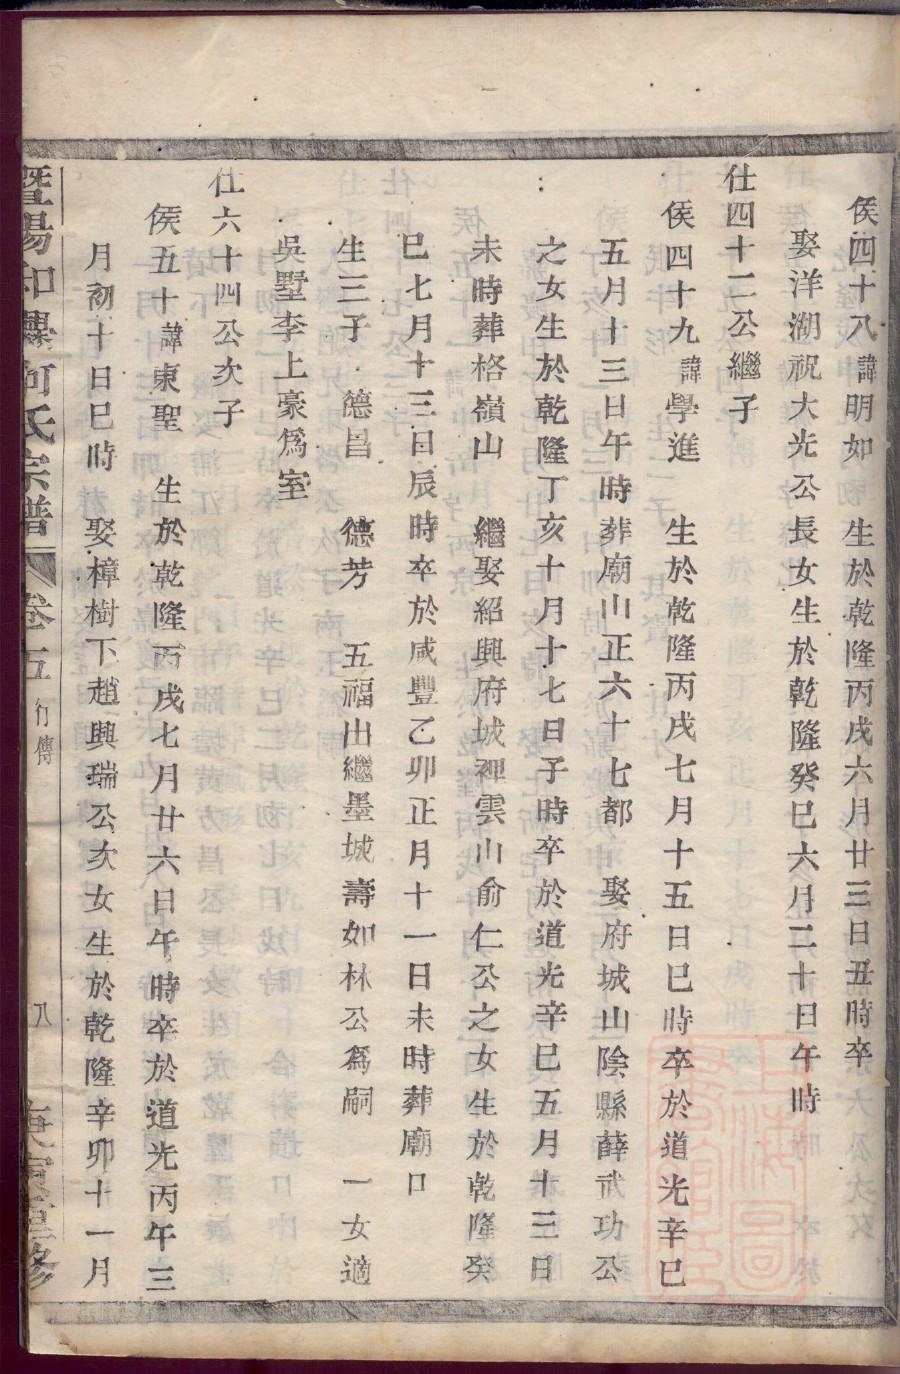 侯四十八諱明如 生於乾隆丙戌六月廿三日丑時卒
娶洋湖祝大光公長女生於乾隆癸巳六月二十日午時
仕四十二公繼子
侯四十九諱學進 生於乾隆丙戌七月十五日巳時卒於道光辛巳
五月十三日午時葬廟山正六十七都 娶府城山陰縣薛武功公
之女生於乾隆丁亥十月十七日子時卒於道光辛巳五月十三日
未時葬格嶺山 繼娶紹興府城裡雲山俞仁公之女生於乾隆癸
巳七月十三日辰時卒於咸豐乙卯正月十一日未時葬廟口
生三子 德昌 德芳 五福出繼墨城壽如林公爲嗣 一女適
吳墅李上豪爲室
仕六十四公次子
侯五十諱東聖 生於乾隆丙戌七月廿六日午時卒於道光丙午三
月初十日巳時 娶樟樹下趙興瑞公次女生於乾隆辛卯十一月
暨陽和 何氏宗譜 卷五 行傳 八 庚寅重修